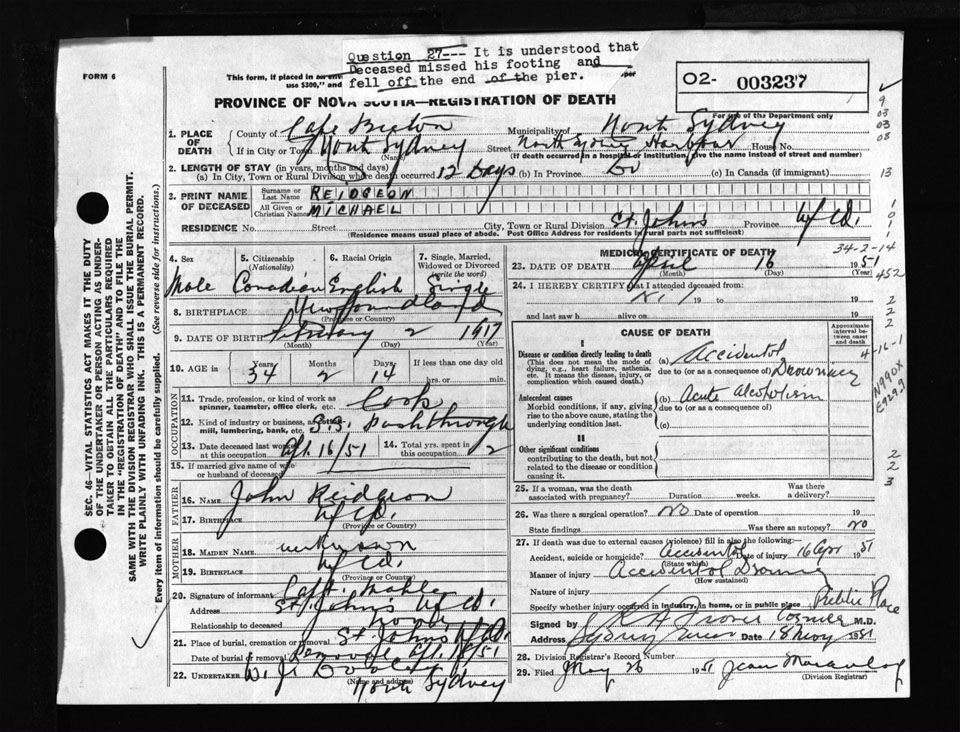 Question 27--- It is understood that
Deceased missed his footing and
fell off the end of the pier.
FORM 6
This form, if placed in an
use $300," and
02- 003237
For use of the Department only
PROVINCE OF NOVA SCOTIA—REGISTRATION OF DEATH
1. PLACE OF DEATH
County of Cape Breton Municipality of North Sydney
If in City or Town North Sydney Street North Sydney Harbour House No.
(Name) (If death occurred in a hospital or institution, give the name instead of street and number)
2. LENGTH OF STAY (in years, months and days)
(a) In City, Town or Rural Division where death occurred 12 Days (b) In Province Do (c) In Canada (if immigrant)
3. PRINT NAME OF DECEASED
Surname or Last Name REIDGEON
All Given or Christian Names MICHAEL
RESIDENCE No. Street City, Town or Rural Division St. Johns Province Nfld.
(Residence means usual place of abode. Post Office Address for residents in rural parts not sufficient)
4. Sex Male
5. Citizenship (Nationality) Canadian
6. Racial Origin English
7. Single, Married, Widowed or Divorced (write the word) Single
8. BIRTHPLACE Newfoundland
(Province or Country)
9. DATE OF BIRTH February 2 1917
(Month) (Day) (Year)
10. AGE in Years 34 Months 2 Days 14 If less than one day old hrs. or min.
OCCUPATION
11. Trade, profession, or kind of work as spinner, teamster, office clerk, etc. Cook
12. Kind of industry or business, as cotton mill, lumbering, bank, etc. S.S. Pushthrough
13. Date deceased last worked at this occupation Apl. 16/51
14. Total yrs. spent in this occupation 2
15. If married give name of wife or husband of deceased
FATHER
16. Name John Reidgeon
17. BIRTHPLACE Nfld.
(Province or Country)
MOTHER
18. MAIDEN NAME unknown
19. BIRTHPLACE Nfld.
(Province or Country)
20. Signature of informant Capt.
Address St. Johns Nfld.
Relationship to deceased none
21. Place of burial, cremation or removal St. Johns Nfld.
Date of burial or removal
22. UNDERTAKER W. J. Dooley
(Name and address)
North Sydney
MEDICAL CERTIFICATE OF DEATH
34-2-14
23. DATE OF DEATH April 16 1951
(Month) (Day) (Year)
24. I HEREBY CERTIFY that I attended deceased from:
19 to 19
and last saw h alive on 19
CAUSE OF DEATH
Approximate interval between onset and death
I
Disease or condition directly leading to death
(This does not mean the mode of dying, e.g., heart failure, asthenia, etc. It means the disease, injury, or complication which caused death.)
(a) Accidental Drowning
due to (or as a consequence of)
Antecedent causes
Morbid conditions, if any, giving rise to the above cause, stating the underlying condition last.
(b) Acute alcoholism
due to (or as a consequence of)
(c)
II
Other significant conditions contributing to the death, but not related to the disease or condition causing it.
25. If a woman, was the death associated with pregnancy? Duration weeks. Was there a delivery?
26. Was there a surgical operation? NO Date of operation 19
State findings Was there an autopsy? NO
27. If death was due to external causes (violence) fill in also the following:—
Accident, suicide or homicide? Accidental Date of injury 16 Apr 1951
(State which)
Manner of injury Accidental Drowning
(How sustained)
Nature of injury
Specify whether injury occurred in industry, in home, or in public place Public Place
Signed by M.D.
Address Sydney Mines Date 18 May 1951
28. Division Registrar's Record Number
29. Filed May 26 1951 Jean
(Division Registrar)
SEC. 46—VITAL STATISTICS ACT MAKES IT THE DUTY
OF THE UNDERTAKER OR PERSON ACTING AS UNDER-
TAKER TO OBTAIN ALL THE PARTICULARS REQUIRED
IN THE "REGISTRATION OF DEATH" AND TO FILE THE
SAME WITH THE DIVISION REGISTRAR WHO SHALL ISSUE THE BURIAL PERMIT.
WRITE PLAINLY WITH UNFADING INK. THIS IS A PERMANENT RECORD.
Every item of information should be carefully supplied. (See reverse side for instructions.)
9
03
03
03
13
1
0
1
1
452
2
2
2
4-16-1
N990X
E9293
2
2
3